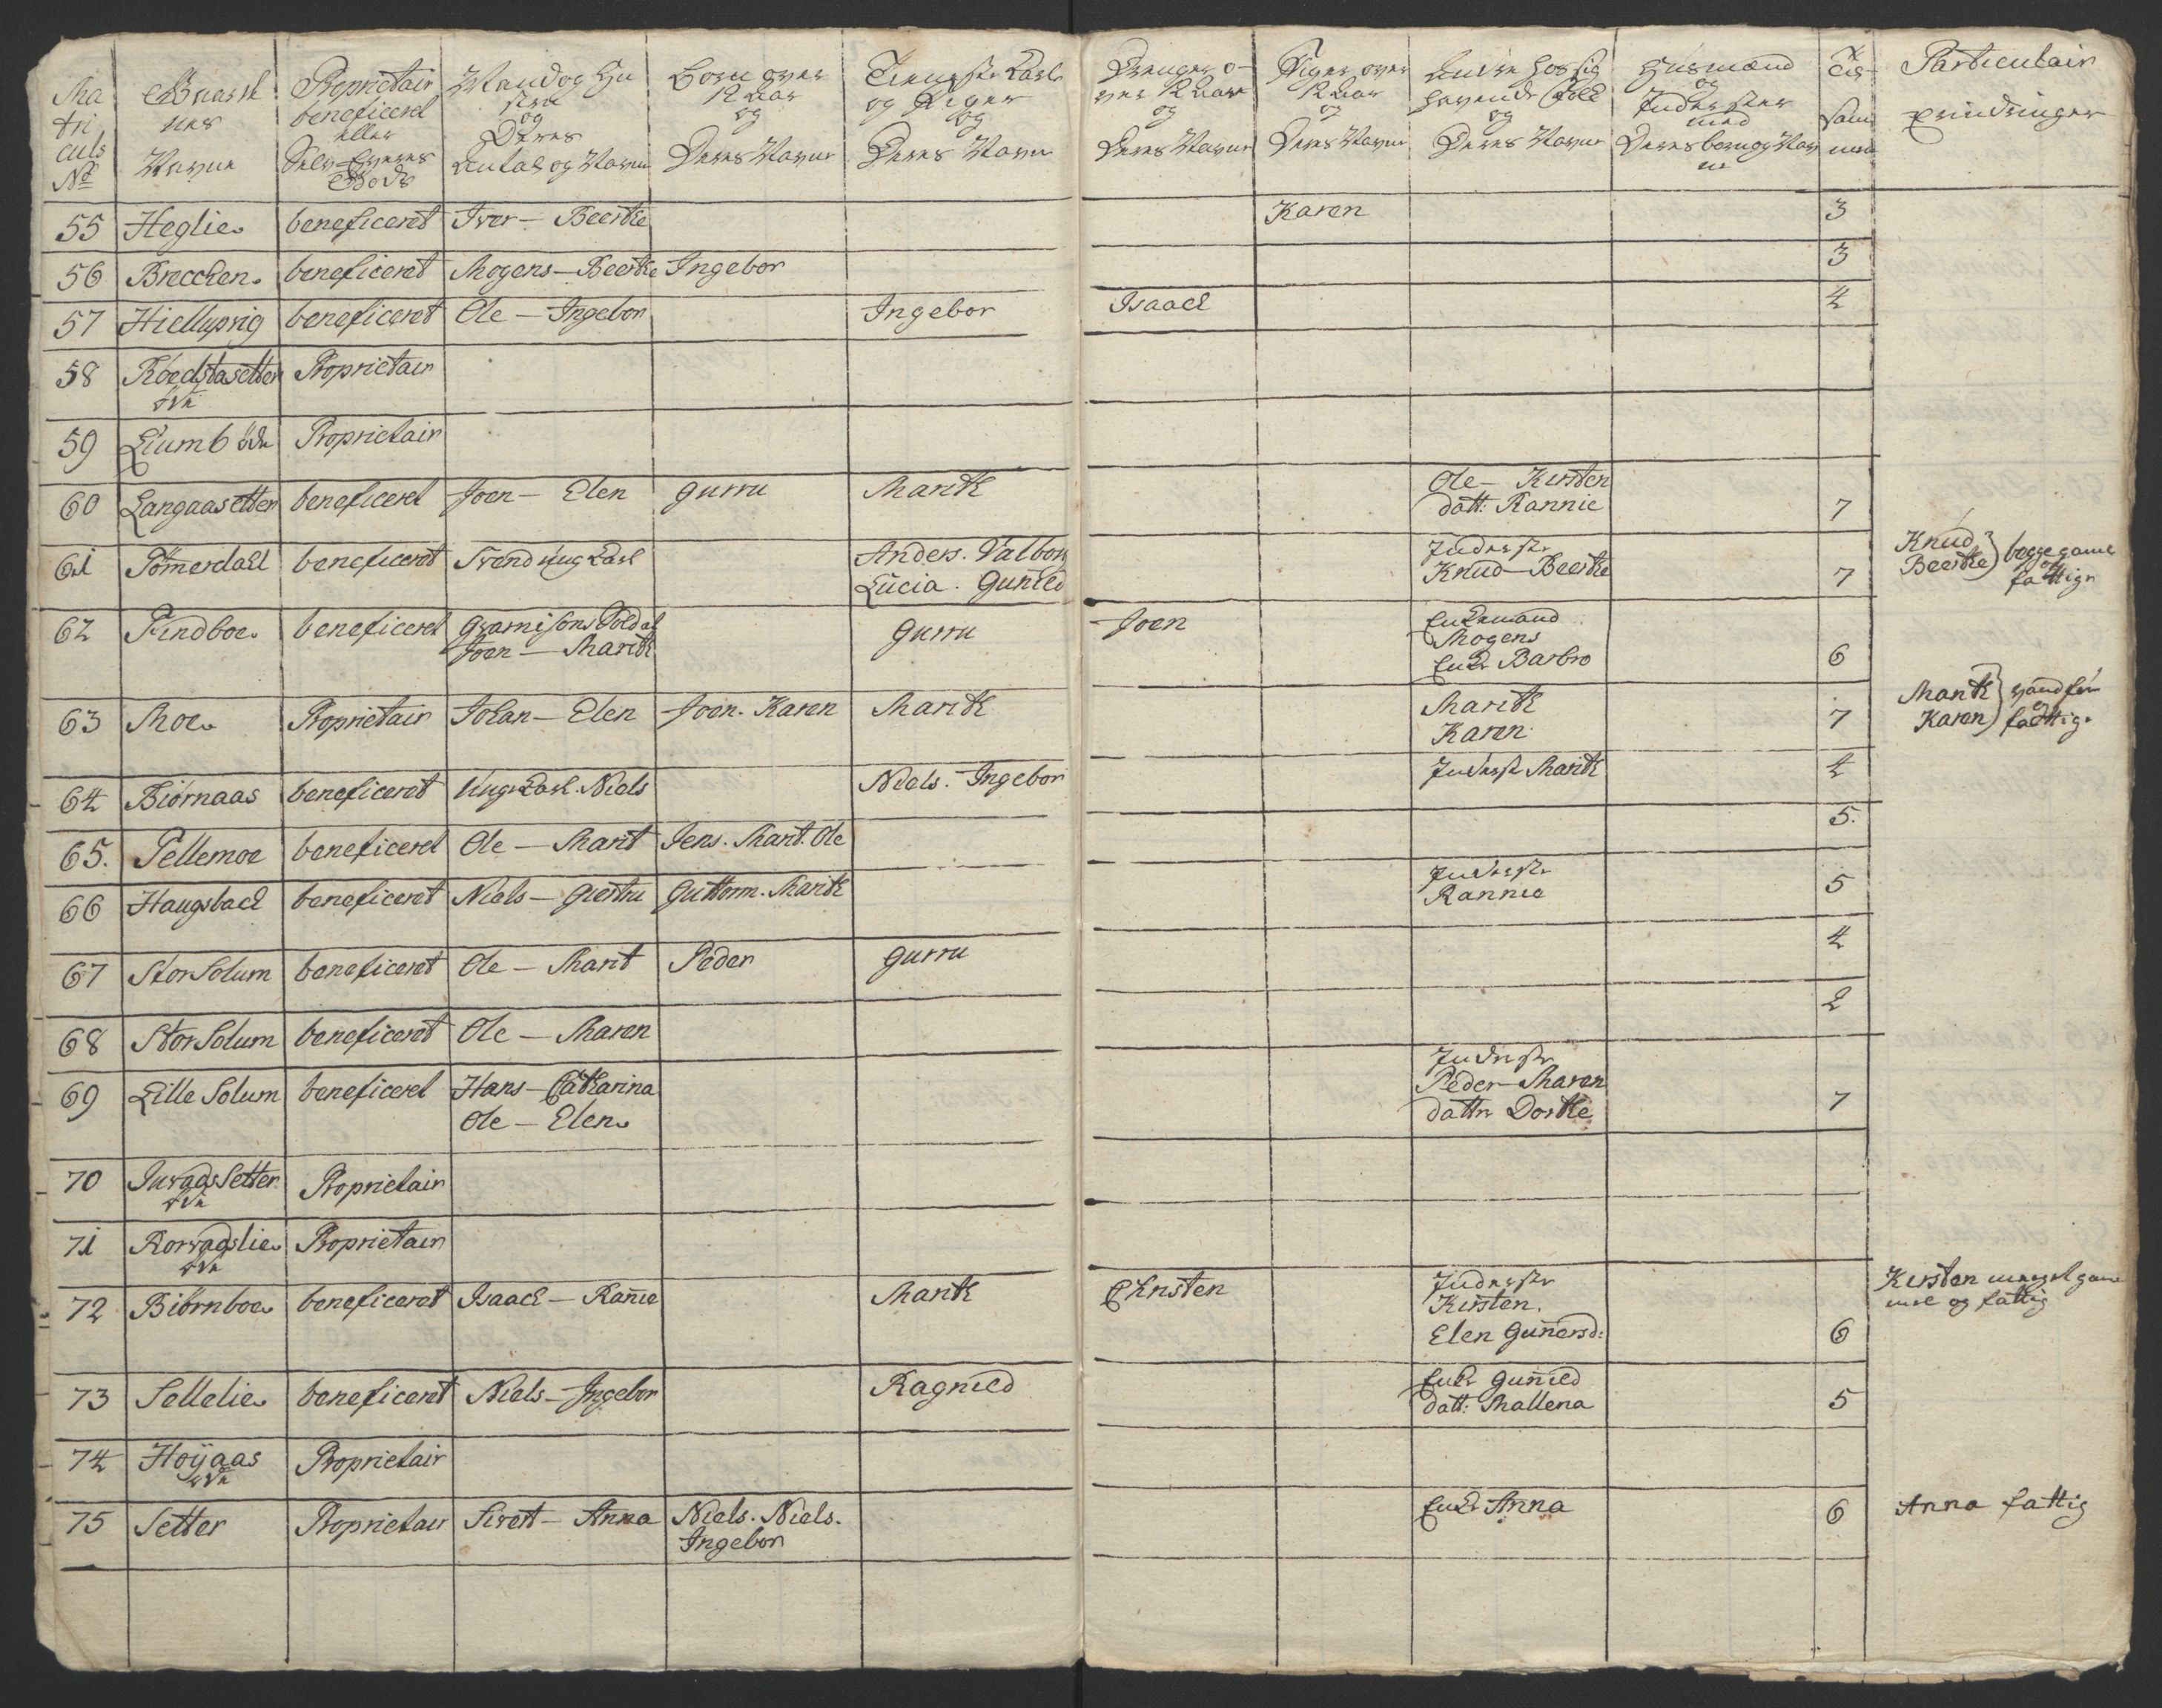 Ma
tri
culs
No
Navne
Proprietair
beneficeret
eller
Mand og Hu
stru
og
Deres
Antal og Navne
Børn over
12 Aar
og
Deres Navne
Tieneste Karle
og Piger
og
Deres Navne
Drenge o-
ver 12 Aar
og
Deres Navne
Piger over
12 Aar
og
Deres Navne
Andre hos sig
havende Folk
og
Deres Navne
Husmænd
og
Inderster
med
Deres børn og Nav
ne
Til-
sam
men
Particulair
Erindringer
55 Heglie beneficeret Iver — Beerthe Karen 3
56 Brecchen beneficeret Mogens — Beerthe Ingebor 3
57 Hiellupvig beneficeret Ole — Ingebor Ingebor Isaach 4
58 Røedstasetter Proprietair
øde
59 Lium b øde Proprietair
60 Langaasetter beneficeret Joen — Elen Gurru Marith Ole — Kirsten
datt: Rannie 7
61 Tømerdahl beneficeret Svend ung Karl Anders. Valbor Inderste
Lucia. Gunild Knud — Beerthe 7 Knud Beerthe } begge gaml og fattige
62 Findboe beneficeret Guarnisons Soldat
Joen — Marith Gurru Joen Enkemand
Mogens
Enke Barbro 6
63 Moe Proprietair Johan — Elen Joen. Karen Marith Marith
Karen 7 Marith Karen } vandfør og fattig
64 Biørnaas beneficeret Ungkarl. Niels Niels. Ingebor Inderste Marith 4
65. Tellemoe beneficeret Ole — Marit Jens. Marit. Ole 5.
66 Haugsbach beneficeret Niels — Giertru Guttorm. Marith Inderste
Rannie 5
67 Stor Solum beneficeret Ole — Marit Peder Gurru 4
68 Stor Solum beneficeret Ole — Maren 2
69 Lille Solum beneficeret Hans — Catharina
Ole — Elen Inderste
Peder — Maren
datter Dorthe 7
70 Proprietair
øde
71 Proprietair
øde
72 Biørnboe beneficeret Isaach — Ranie Marith Christen Inderste
Kirsten.
Elen Gunersd: 6 Kirsten meget gam
mel og fattig
73 Sellelie beneficeret Niels — Ingebor Ragnild Enke Gunild
datt: Mallena 5
74 Høyaas Proprietair
øde
75 Setter Proprietair Sivert — Anna Niels. Niels.
Ingebor Enke Anna 6 Anna fattig